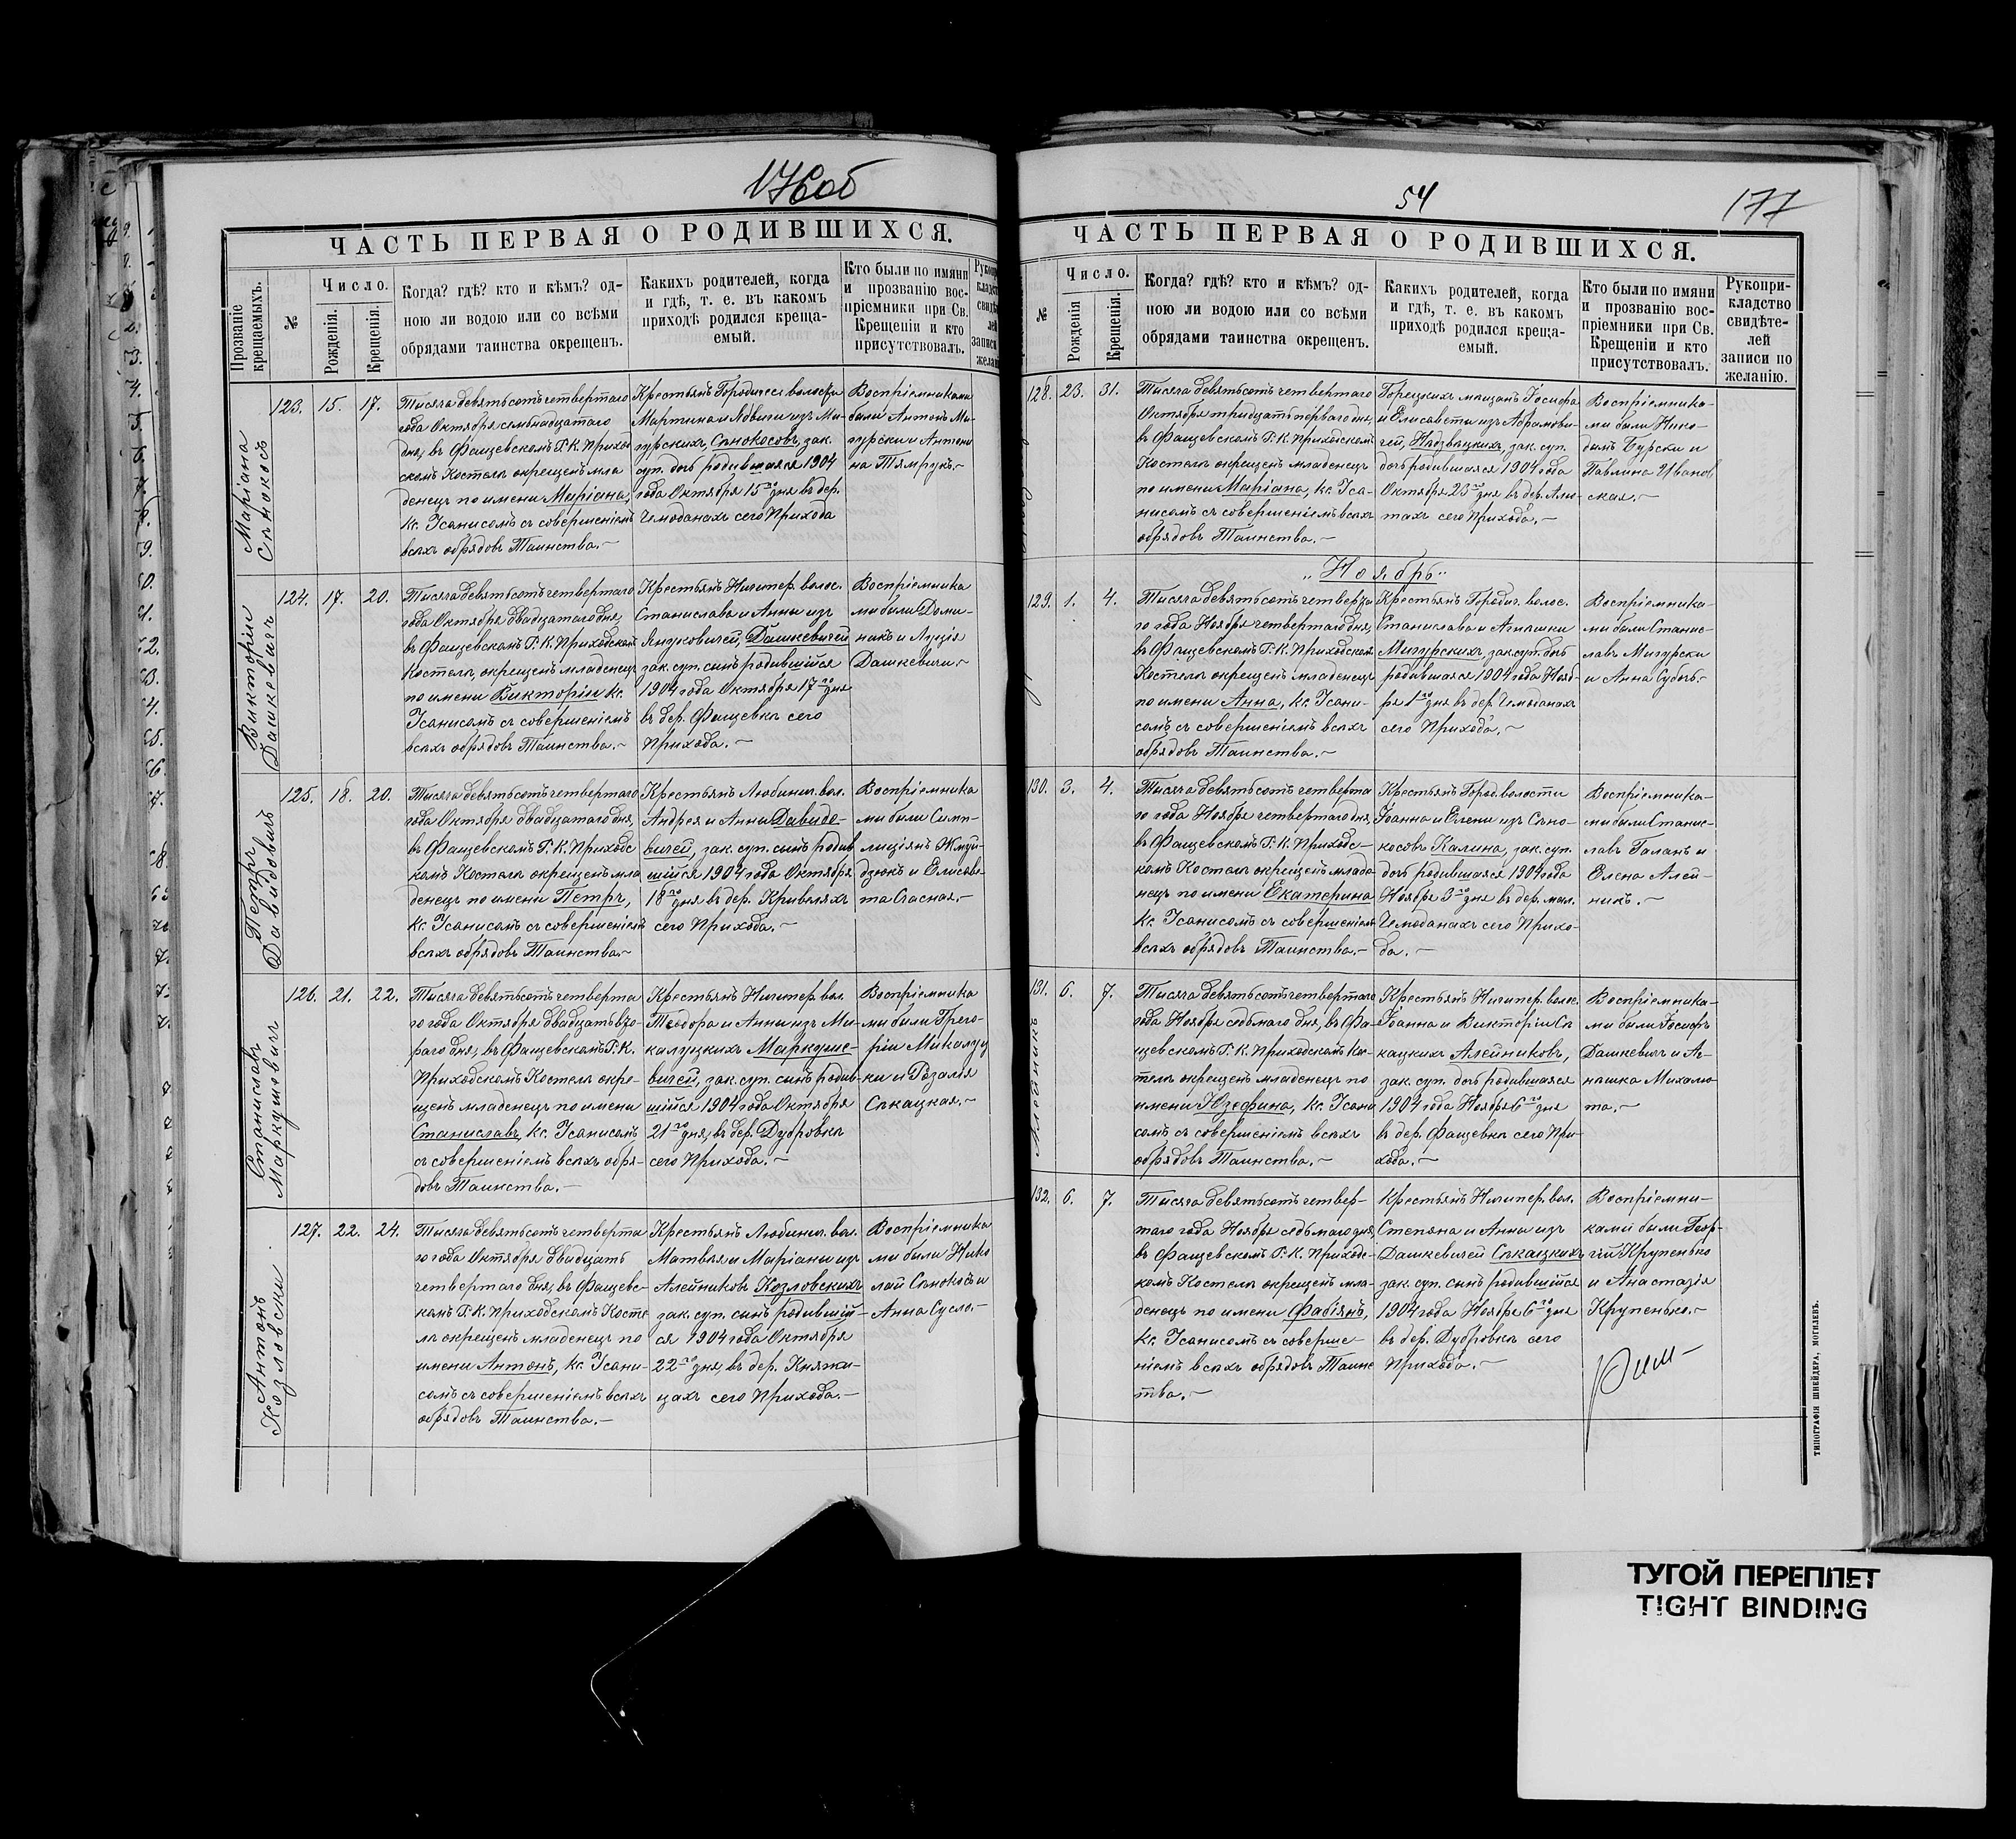 176 об
ЧАСТЬ ПЕРВАЯ О РОДИВШИХСЯ.
Прозваніе крещаемыхъ.
№
Число.
Рожденія.
Крещенія.
Когда? гдѣ? кто и кѣмъ? од-
ною ли водою или со всѣми
обрядами таинства окрещенъ.
Какихъ родителей, когда
и гдѣ, т. е. въ какомъ
приходѣ родился креща-
емый.
Кто были по имяни
и прозванію вос-
пріемники при Св.
Крещеніи и кто
присутствовалъ.
Маріана
Сѣнокосъ
123. 15. 17.
Тысяча девятьсотъ четвертаго
года Октября семьнадцатаго
дня, въ Фащевскомъ Р. К. Приход
скомъ Костелѣ окрещенъ мла
денецъ по имени Маріана,
Кс. Усанисомъ съ совершеніемъ
всѣхъ обрядовъ Таинства.~
Крестьянъ Городищес. волости
Мартина и Ядвиги изъ Ми-
гурскихъ, Сѣнокосовъ, зак.
суп. дочь родившаяся 1904
года Октября 15го дня въ дер.
Чемоданахъ сего Прихода
Воспріемниками
были Антонъ Ми-
гурски и Антони
на Тямрукъ.~
Викторіи
Дашкевичъ
124. 17. 20.
Тысяча девятьсотъ четвертаго
года Октября двадцатаго дня,
въ Фащевскомъ Р. К. Приходском
Костелѣ, окрещенъ младенецъ
по имени Викторіи Кс.
Усанисомъ съ совершеніемъ
всѣхъ обрядовъ Таинства.~
Крестьянъ Ничипер. волос.
Станислава и Анны изъ
Янушковичей, Дашкевичей
зак. суп. сынъ родившійся
1904 года Октября 17го дня
въ дер. Фащевка сего
Прихода.~
Воспріемника
ми были Доми-
никъ и Луція
Дашкевичи.~
Петръ
Давидовичъ
125. 18. 20.
Тысяча девятьсотъ четвертаго
года Октября двадцатаго дня,
въ Фащевскомъ Р. К. Приходс
комъ Костелѣ окрещенъ мла
денецъ по имени Петръ,
Кс. Усанисомъ съ совершеніемъ
всѣхъ обрядовъ Таинства.~
Крестьянъ Любинич. вол.
Андрея и Анны Давидо-
вичей, зак. суп. сынъ родив
шійся 1904 года Октября
18го дня въ дер. Кривеляхъ
сего Прихода.~
Воспріемника
ми были Сим-
лиціянъ Жмуй-
дзюкъ и Елисаве
та Спасная.~
Станиславъ
Маркушевичъ
126. 21. 22.
Тысяча девятьсотъ четверта
го года Октября двадцать вто-
раго дня, въ Фащевскомъ Р. К.
Приходскомъ Костелѣ окре-
щенъ младенецъ по имени
Станиславъ, Кс. Усанисомъ
съ совершеніемъ всѣхъ обря-
довъ Таинства.~
Крестьянъ Ничипер. вол.
Теодора и Анны изъ Ми-
калуцкихъ Маркуше-
вичей, зак. суп. сынъ родив-
шійся 1904 года Октября
21го дня, въ дер. Дубровка
сего Прихода.~
Воспріемника
ми были Грего-
рій Микалуц
ки и Розалія
Сѣкацкая.~
Антонъ
Козловски
127. 22. 24.
Тысяча девятьсотъ четверта
го года Октября двадцать
четвертаго дня, въ Фащевс-
комъ Р. К. Приходскомъ Косте
лѣ окрещенъ младенецъ по
имени Антонъ, Кс. Усани-
сомъ съ совершеніемъ всѣхъ
обрядовъ Таинства.~
Крестьянъ Любинич. вол.
Матвѣя и Маріаны изъ
Алейниковъ Козловскихъ
зак. суп. сынъ родившій-
ся 1904 года Октября
22го дня, въ дер. Княжи-
цахъ сего Прихода.~
Воспріемника
ми были Нико
лай Сѣнокосъ и
Анна Сусло.~
54
177
ЧАСТЬ ПЕРВАЯ О РОДИВШИХСЯ.
№
Число.
Рожденія
Крещенія.
Когда? гдѣ? кто и кѣмъ? од-
ною ли водою или со всѣми
обрядами таинства окрещенъ.
Какихъ родителей, когда
и гдѣ, т. е. въ какомъ
приходѣ родился креща-
емый.
Кто были по имяни
и прозванію вос-
пріемники при Св.
Крещеніи и кто
присутствовалъ.
Рукопри-
кладство
свидѣте-
лей
записи по
желанію.
128. 23. 31.
Тысяча девятьсотъ четвертаго
Октября тридцать перваго дня,
въ Фащевскомъ Р. К. Приходскомъ
Костелѣ окрещенъ младенецъ
по имени Маріана, Кс. Уса-
нисомъ съ совершеніемъ всѣхъ
обрядовъ Таинства.~
Горецкихъ мѣщанъ Іосифа
и Елисаветы изъ Абрамови-
чей, Надзвяцкихъ, зак. суп.
дочь родившаяся 1904 года
Октября 23го дня въ дер. Али-
тахъ сего Прихода.~
Воспріемника-
ми были Нико-
димъ Бурски и
Павлина Иванов
ская.~
„Ноябрь“
129. 1. 4.
Тысяча девятьсотъ четверта
го года Ноября четвертаго дня,
въ Фащевскомъ Р. К. Приходском
Костелѣ окрещенъ младенецъ
по имени Анна, Кс. Усани-
сомъ съ совершеніемъ всѣхъ
обрядовъ Таинства.~
Крестьянъ Городищ. волос.
Станислава и Агнешки
Мигурскихъ, зак. суп. дочь
родившаяся 1904 года Нояб-
ря 1го дня въ дер. Чемоданахъ
сего Прихода.~
Воспріемника-
ми были Станис-
лавъ Мигурски
и Анна Суботь.~
130. 3. 4.
Тысяча девятьсотъ четверта
го года Ноября четвертаго дня,
въ Фащевскомъ Р. К. Приходс-
комъ Костелѣ окрещенъ младе
нецъ по имени Екатерина
Кс. Усанисомъ съ совершеніемъ
всѣхъ обрядовъ Таинства.~
Крестьянъ Город. волости
Іоанна и Елены изъ Сѣно-
косовъ Калина, зак. суп.
дочь родившаяся 1904 года
Ноября 3го дня въ дер. мал.
Чемоданахъ сего Прихо-
да.~
Воспріемника-
ми были Станис-
лавъ Галанъ и
Елена Алей-
никъ.~
Алейникъ
131. 6. 7.
Тысяча девятьсотъ четвертаго
года Ноября седьмаго дня, въ Фа-
щевскомъ Р. К. Приходскомъ Кос-
телѣ окрещенъ младенецъ по
имени Юзефина, Кс. Усани
сомъ съ совершеніемъ всѣхъ
обрядовъ Таинства.~
Крестьянъ Ничипер. волос.
Іоанна и Викторіи Сѣ
кацкихъ Алейниковъ,
зак. суп. дочь родившаяся
1904 года Ноября 6го дня
въ дер. Фащевка сего При
хода.~
Воспріемника-
ми были Іосифъ
Дашкевичъ и Аг-
нешка Михалю-
та.~
132. 6. 7.
Тысяча девятьсотъ четвер-
таго года Ноября седьмаго дня,
въ Фащевскомъ Р. К. Приходс-
комъ Костелѣ окрещенъ мла-
денецъ по имени Фабіянъ,
Кс. Усанисомъ съ соверше-
ніемъ всѣхъ обрядовъ Таинс
тва.~
Крестьянъ Ничипер. вол.
Степана и Анны изъ
Дашкевичей Сѣкацкихъ
зак. суп. сынъ родившійся
1904 года Ноября 6го дня
въ дер. Дубровка сего
Прихода.~
Воспріемни-
ками были Геор-
гій Крупенько
и Анастазія
Крупенько.~
ТИПОГРАФІЯ ШНЕЙДЕРА, МОГИЛЕВЪ.
ТУГОЙ ПЕРЕПЛЕТ
TIGHT BINDING